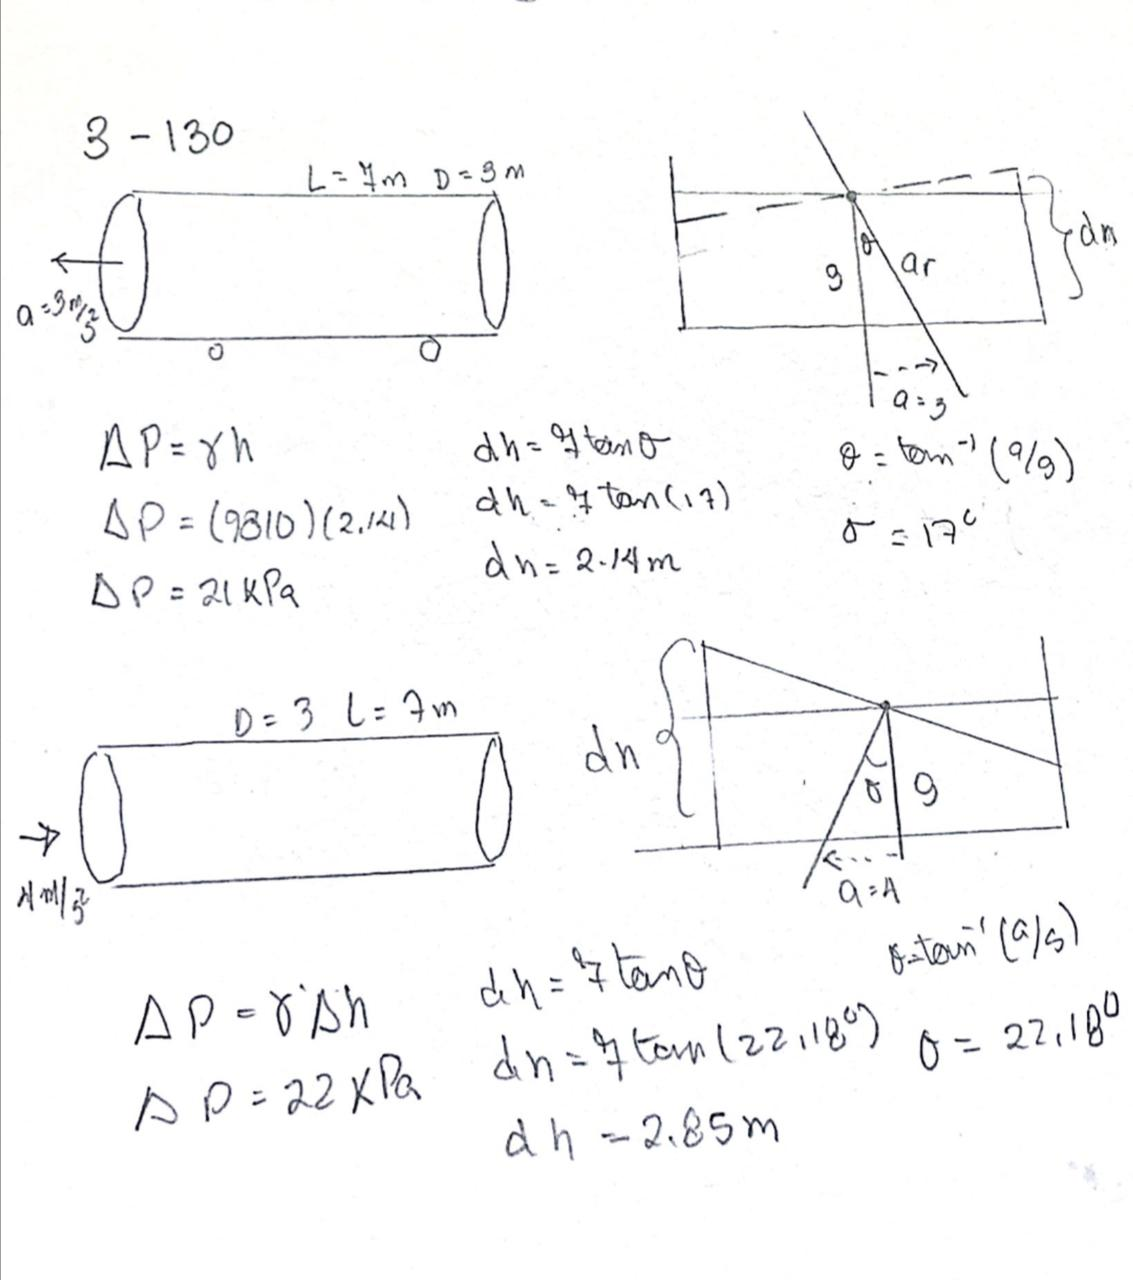 3 - 130
L = 7m D = 3m
a = 3 m/s²
dh
θ
g
ar
a = 3
ΔP = γh
ΔP = (9810)(2.14)
ΔP = 21 kPa
dh = 7 tanθ
dh = 7 tan(17)
dh = 2.14m
θ = tan⁻¹ (a/g)
θ = 17°
D = 3 L = 7m
4 m/s²
dh
θ
g
a = 4
ΔP = γΔh
ΔP = 22 kPa
dh = 7 tanθ
dh = 7 tan(22.18°)
dh = 2.85m
θ = tan⁻¹ (a/g)
θ = 22.18°